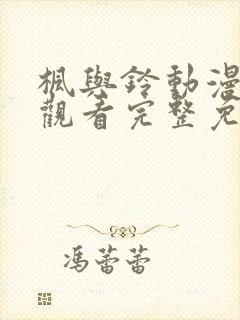 楓與鈴動漫
觀看完整免
馮蕾蕾